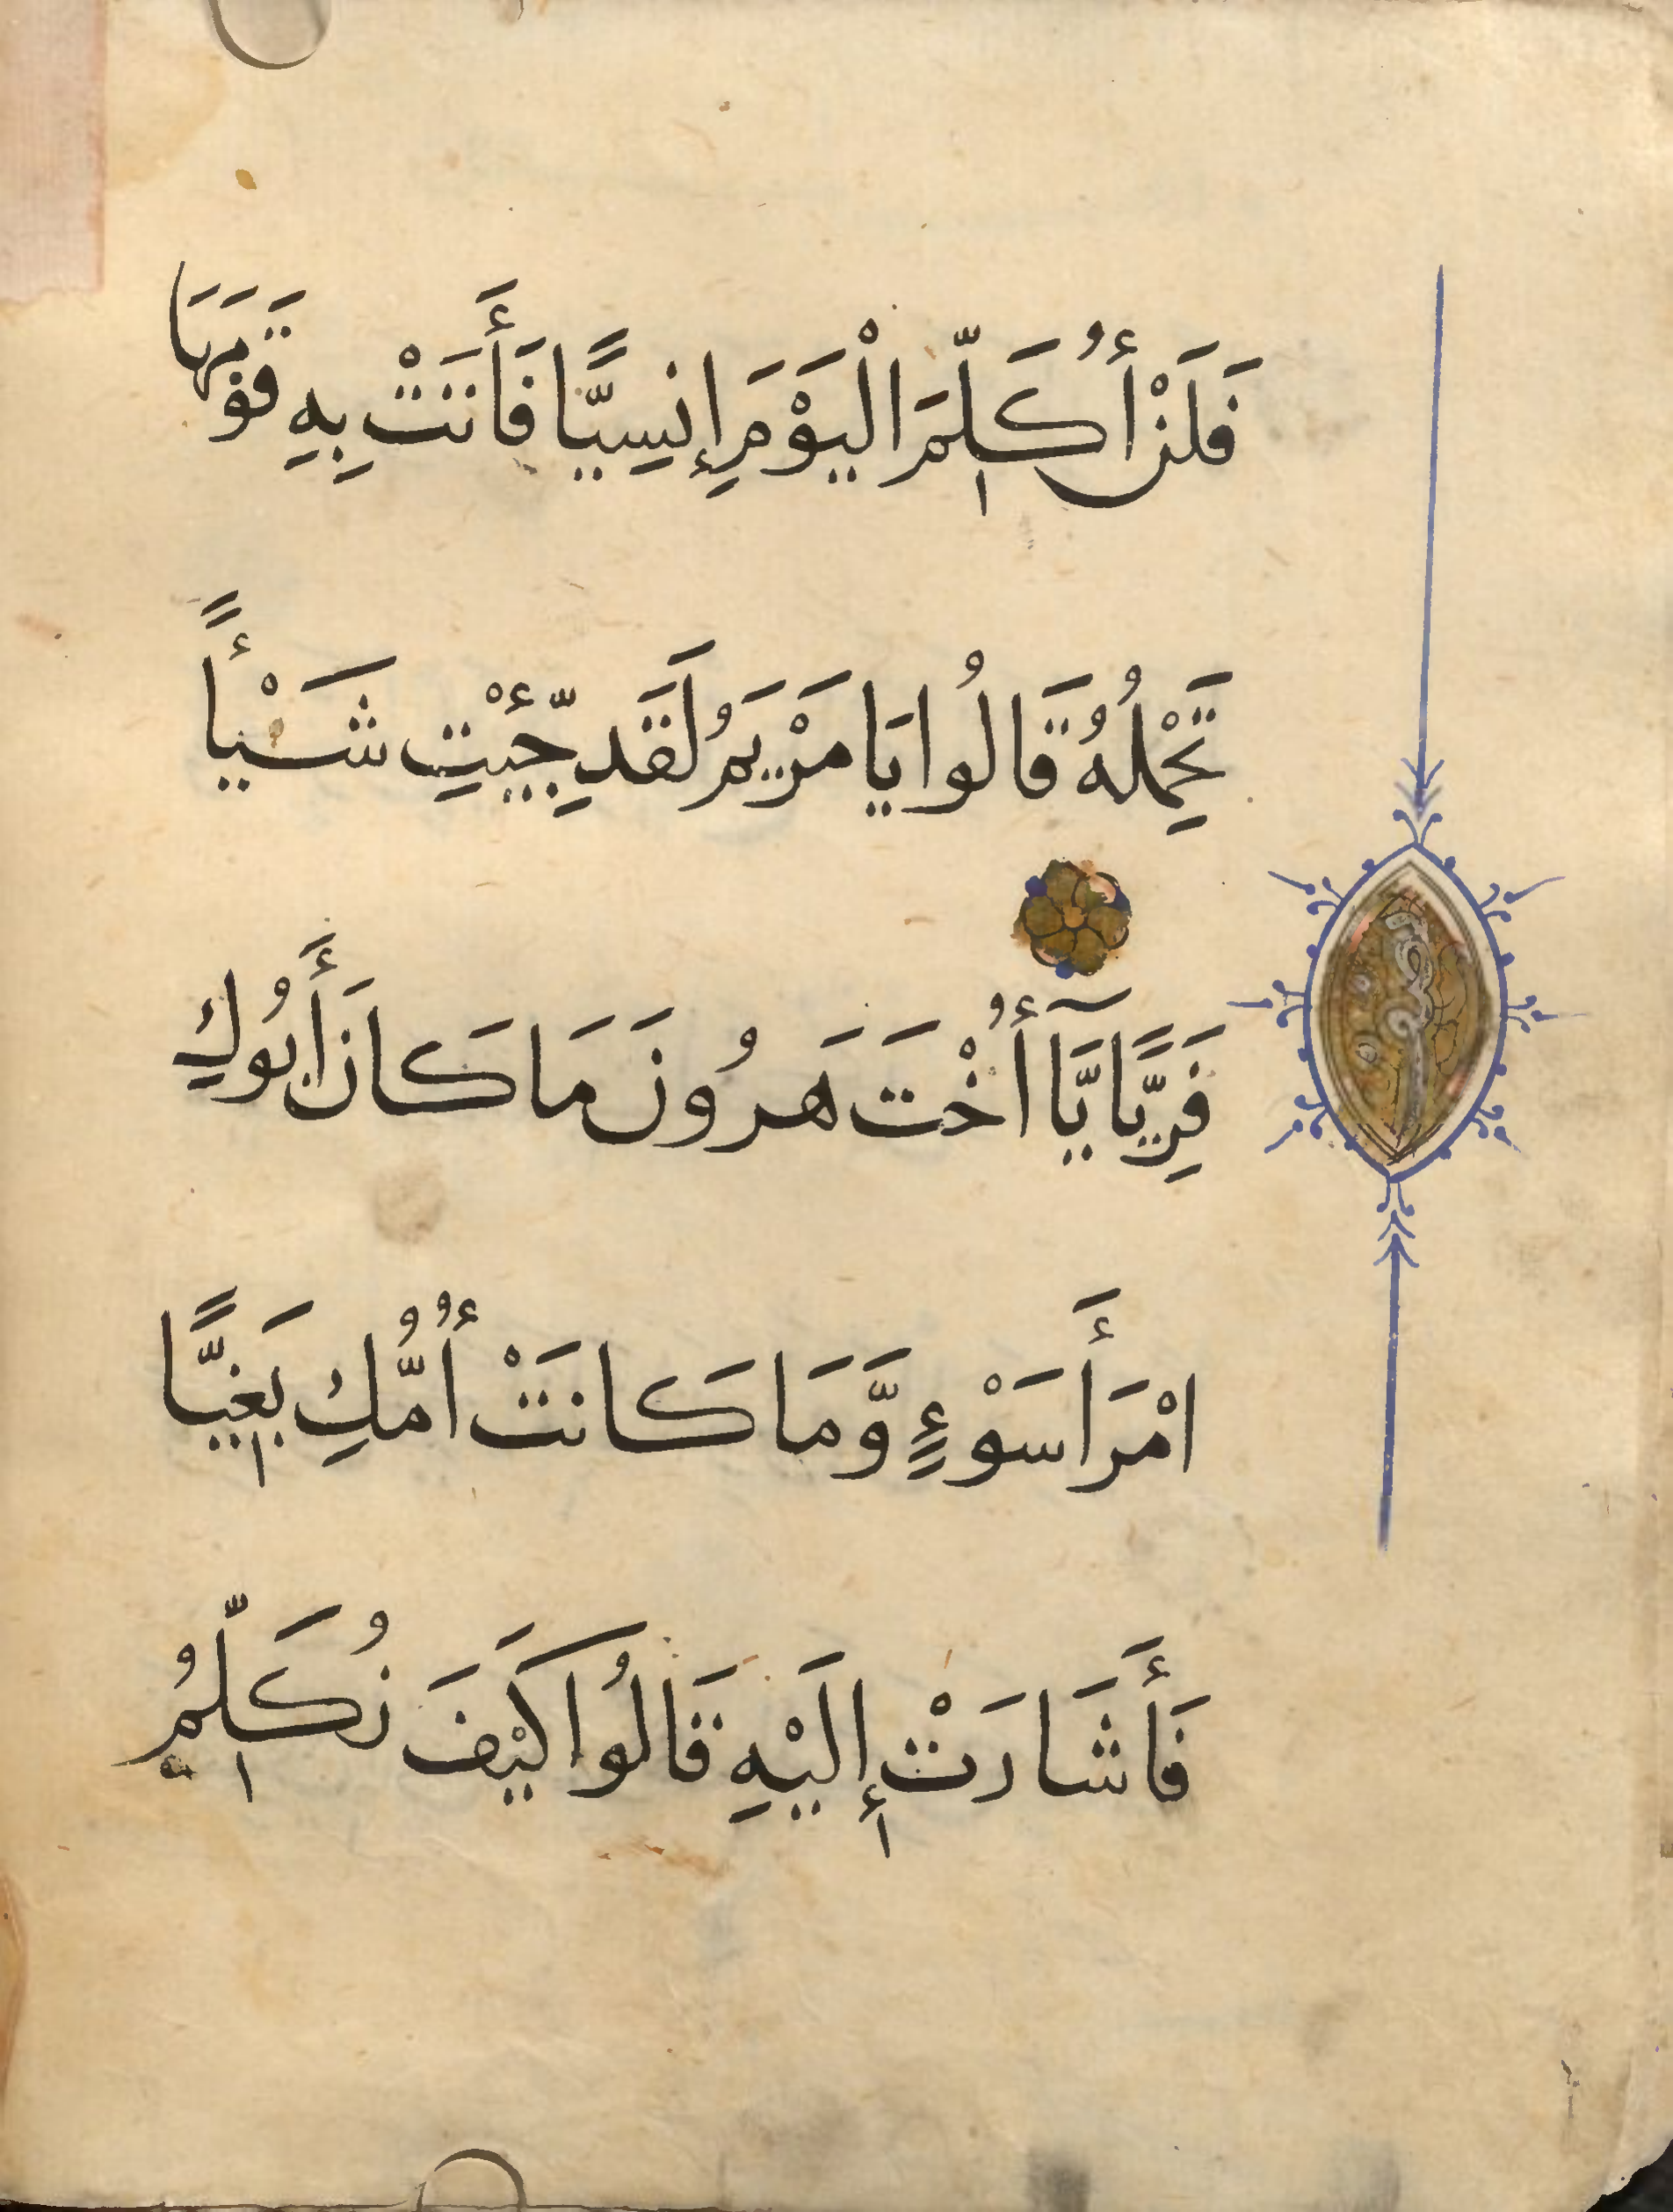 فَلَنْ أُكَلِّمَ الْيَوْمَ إِنسِيًّا فَأَتَتْ بِهِ قَوْمَهَا
تَحْمِلُهُ قَالُوا يَا مَرْيَمُ لَقَد جِّئْتِ شَيْأً
فَرِيًّا يَّا أُخْتَ هَرُونَ مَا كَانَ أَبُوكِ
امْرَأَ سَوْءٍ وَّمَا كَانَتْ أُمُّكِ بَغِيًّا
فَأَشَارَتْ إِلَيْهِ قَالُوا كَيْفَ نُكَلِّمُ